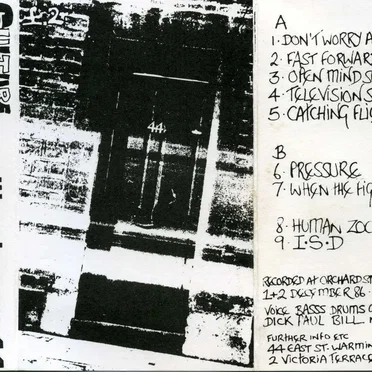 1·2·
44
A
1· DON'T WORRY A
2· FAST FORWAR
3· OPEN MIND S
4· TELEVISION S
5· CATCHING FLI
B
6· PRESSURE
7· WHEN THE FI
8· HUMAN ZOO
9· I·S·D
RECORDED AT ORCHARD ST
1+2 DECEMBER 86
VOICE BASSS DRUMS
DICK PAUL BILL
FURTHER INFO ETC
44 EAST ST. WARMIN
2 VICTORIA TERRACE